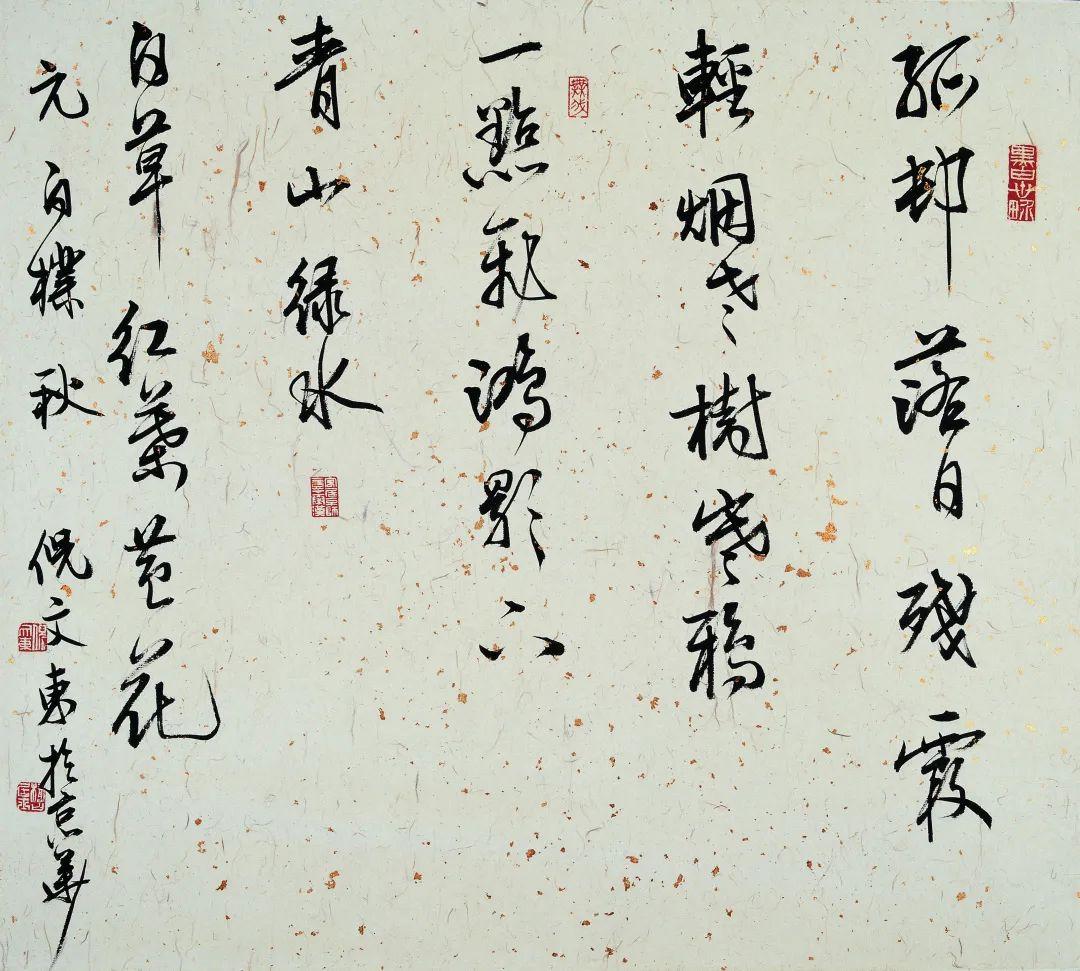 孤邨落日殘霞
輕烟老樹寒鴉
一點飛鴻影下
青山緑水
白草紅葉黄花
元白樸秋倪文東於京華